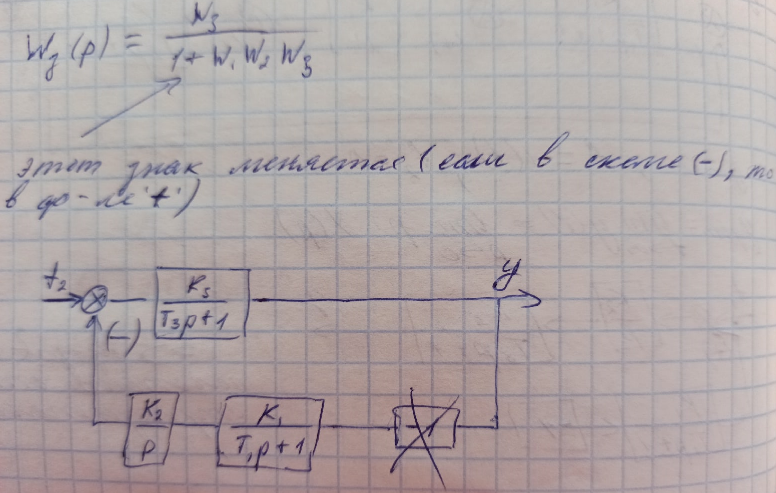 W_y(p) = W_3 / (1 + W_1 W_2 W_3)
этот знак меняется (если в схеме (-), то
в ф-ле "+")
f_2
K_3 / (T_3 p + 1)
y
(-)
K_2 / p
K_1 / (T_1 p + 1)
-1